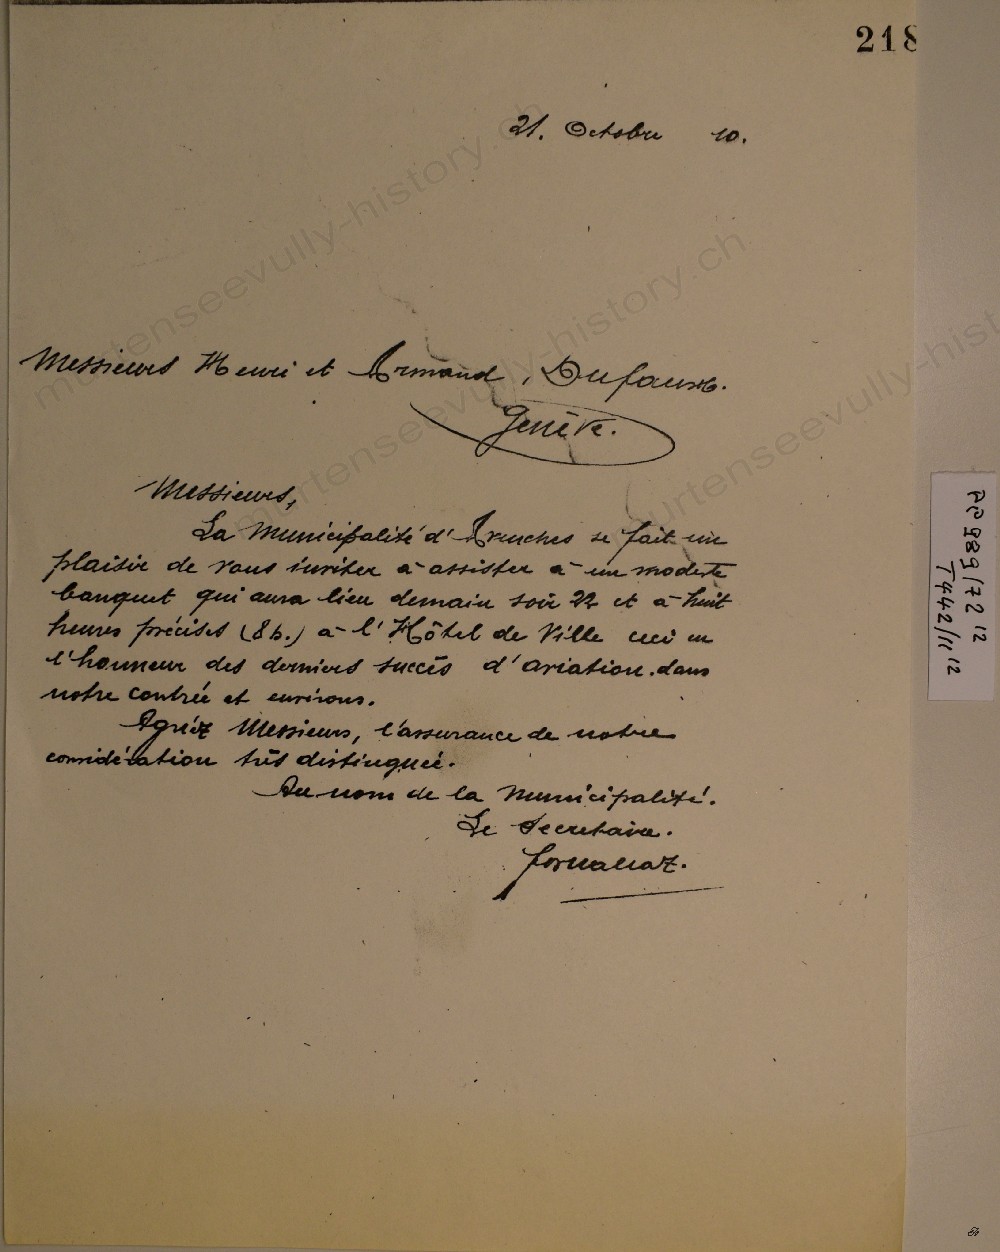 218
21. Octobre 10.
Messieurs Henri et Armand, Dufaux.
Genève.
Messieurs,
La Municipalité d'Avenches se fait un
plaisir de vous inviter à assister à un modeste
banquet qui aura lieu demain soir 22 ct à huit
heures précises (8 h.) à l'Hôtel de Ville ceci en
l'honneur des derniers succès d'aviation dans
notre contrée et environs.
Agréez Messieurs, l'assurance de notre
considération très distinguée.
Au nom de la Municipalité.
Le Secretaire.
Fornallaz.
PP 989/7212
T442/1112
murtenseevully-history.ch
murtenseevully-history.ch
murtenseevully-history.ch